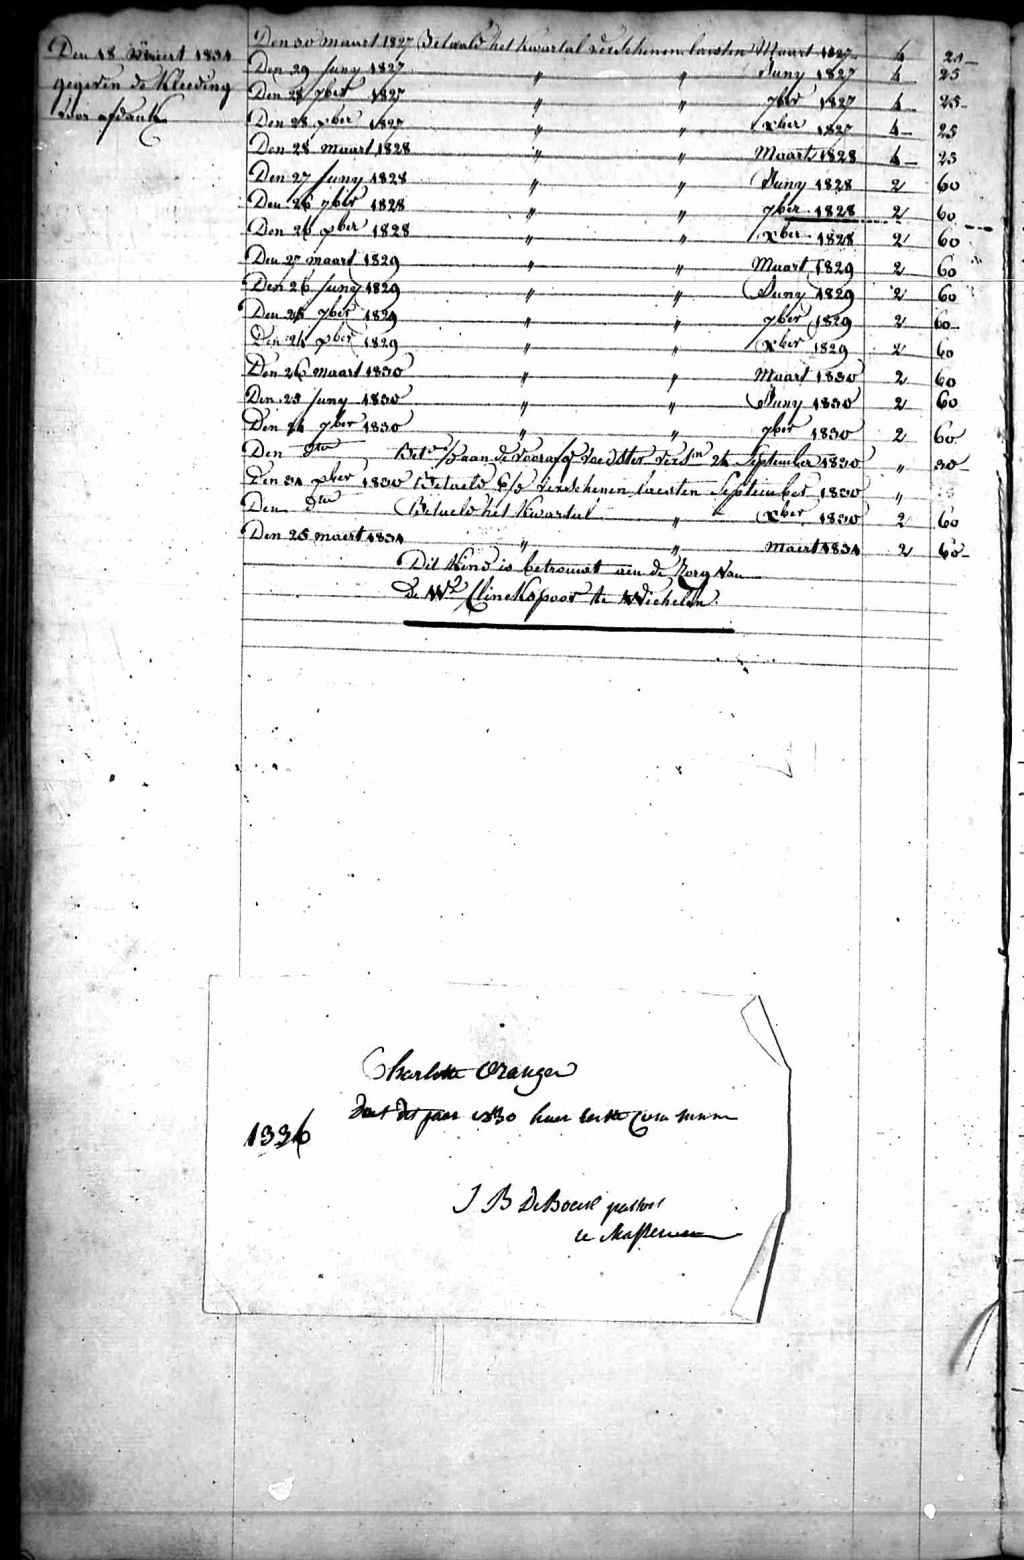 Den 18 Maert 1831
gegeven de Kleeding
voor afdank
Den 30 maart 1827 Betaald het Kwartal verschenen laesten Maart 1827 4 25
Den 29 Juny 1827 " " Juny 1827 4 25
Den 28 7ber 1827 " " 7ber 1827 4 25
Den 28 xber 1827 " " xber 1827 4 25
Den 28 maart 1828 " " Maart 1828 4 25
Den 27 Juny 1828 " " Juny 1828 2 60
Den 26 7ber 1828 " " 7ber 1828 2 60
Den 26 xber 1828 " " xber 1828 2 60
Den 27 maart 1829 " " Maart 1829 2 60
Den 26 Juny 1829 " " Juny 1829 2 60
Den 7ber 1829 " " 7ber 1829 2 60
Den 24 xber 1829 " " xber 1829 2 60
Den 26 maart 1830 " " Maart 1830 2 60
Den 25 Juny 1830 " " Juny 1830 2 60
Den 24 7ber 1830 " " 7ber 1830 2 60
Den dto aan de voedster 24 September 1830 " 30
Den 31 xber 1830 Betaeld verschenen laesten September 1830 "
Den dto Betaeld het Kwartal " xber 1830 2 60
Den 25 maert 1831 " " Maert 1831 2 60
Dit Kind is betrouwt aen de Zorg van
De Wd Clinckspoor te Wichelen.
Charlotte Oranger
doet dit jaer 1830 haer eerste Communie
1336
J B De Boeck pastor
te Massemen